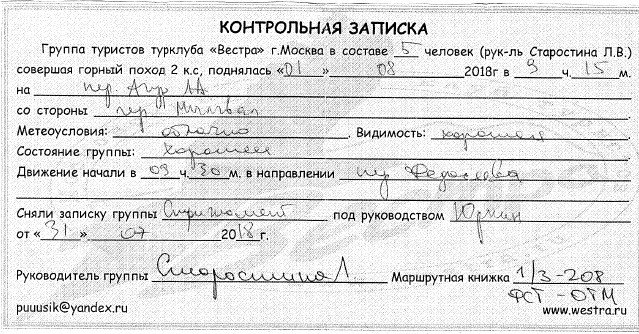 КОНТРОЛЬНАЯ ЗАПИСКА
Группа туристов турклуба «Вестра» г.Москва в составе 5 человек (рук-ль Старостина Л.В.)
совершая горный поход 2 к.с, поднялась «01» 08 2018г в 9 ч. 15 м.
на пер. Агур 1А
со стороны пер.
Метеоусловия: облачно. Видимость: хорошая
Состояние группы: хорошее
Движение начали в 09 ч. 30 м. в направлении пер
Сняли записку группы под руководством Юркин
от «31» 07 2018 г.
Руководитель группы Старостина Л. Маршрутная книжка 1/3-208
ФСТ - ОТМ
puuusik@yandex.ru www.westra.ru